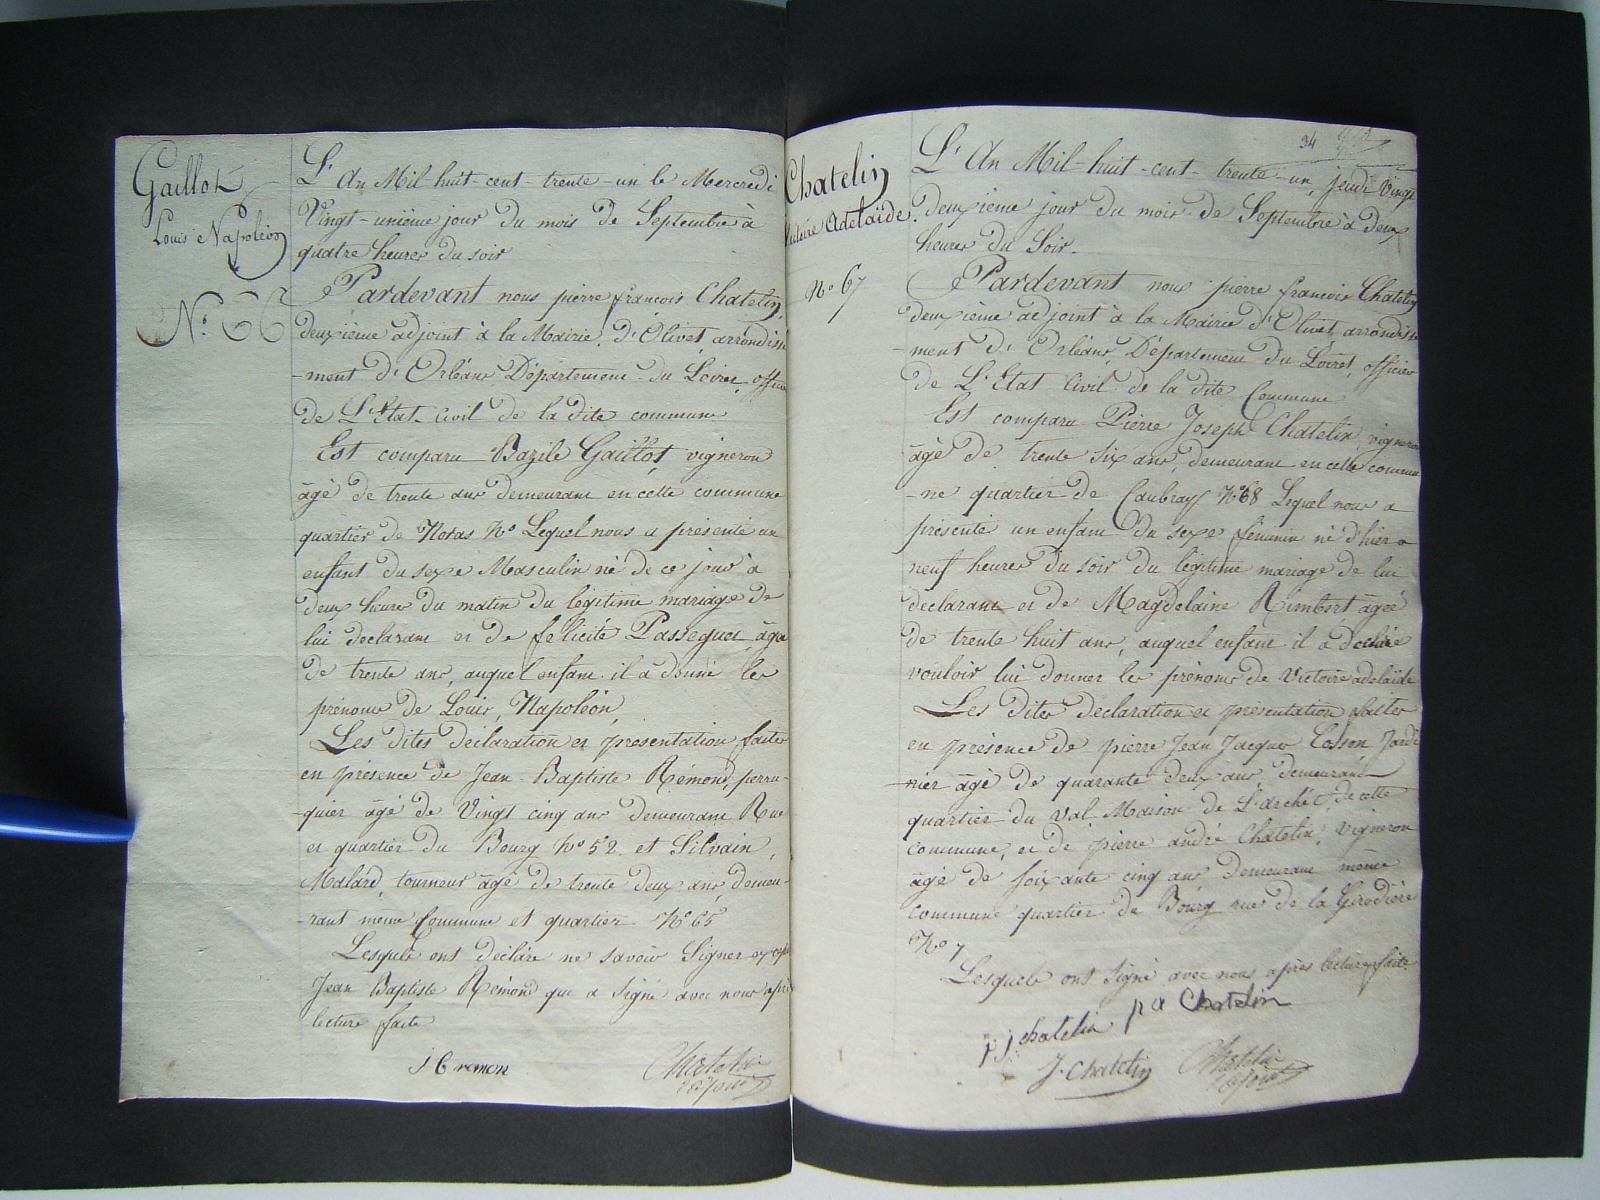 Gaillot
Louis Napoléon
N.º 66
L'An Mil-huit-cent-trente-un le Mercredi
Vingt-unième jour du mois de Septembre à
quatre heures du soir
Pardevant nous pierre françois Chatelin,
deuxième adjoint à la Mairie d'Olivet, arrondisse
-ment d'Orléans, Département du Loiret, officier
de L'Etat Civil de la dite commune
Est comparu Bazile Gaillot, vigneron
âgé de trente ans demeurant en cette commune
quartier de Noras Nº Lequel nous a présenté un
enfant du sexe Masculin né de ce jour à
deux heures du matin du légitime mariage de
lui declarant et de félicité Passeguet, âgée
de trente ans, auquel enfant il a donné les
prénoms de Louis, Napoléon,
Les dites déclaration et présentation faites
en présence de Jean-Baptiste Rémond, perru-
quier âgé de Vingt cinq ans demeurant Rue
et quartier du Bourg Nº 52. et Silvain,
Malard, tourneur âgé de trente deux ans demeu-
-rant meme Commune et quartier Nº 65
Lesquels ont déclaré ne savoir Signer excepté
Jean Baptiste Rémond qui a Signé avec nous après
lecture faite
J B remon
Chatelin
adjoint
94
Chatelin
Victoire Adelaïde.
Nº 67
L'An Mil-huit-cent-trente-un, jeudi Vingt
deuxième jour du mois de Septembre à deux
heures du Soir.
Pardevant nous pierre françois Chatelin
deuxième adjoint à la Mairie d'Olivet, arrondisse
-ment d'Orléans, Département du Loiret, officier
de L'Etat Civil de la dite Commune
Est comparu Pierre Joseph Chatelin, vigneron
âgé de trente six ans, demeurant en cette commu
-ne quartier de Caubray Nº 68 Lequel nous a
présenté un enfant du sexe féminin né d'hier a
neuf heures du soir du légitime mariage de lui
declarant et de Magdelaine Rimbert âgée
de trente huit ans, auquel enfant il a déclaré
vouloir lui donner les prénoms de Victoire adelaïde
Les dites déclaration et présentation faites
en présence de pierre Jean Jacques Cosson Jardi
-nier âgé de quarante deux ans demeurant
quartier du Val Maison de L'archet, de cette
commune, et de pierre andré Chatelin, Vigneron
âgé de soixante cinq ans demeurant même
commune quartier du Bourg rue de la Girodière
Nº 7
Lesquels ont Signé avec nous après lecture faite.
p j chatelin p a Chatelin
J. Chatelin
Chatelin
adjoint